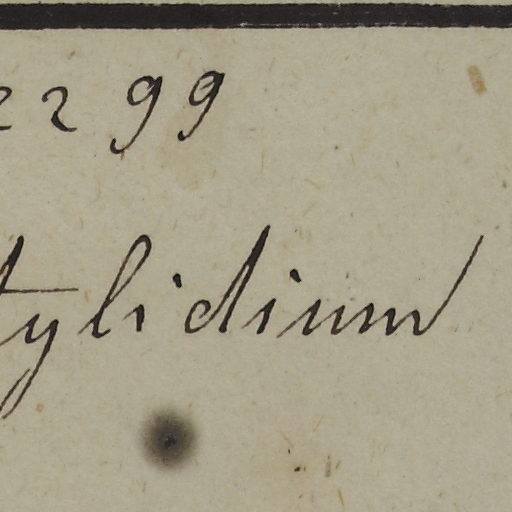 2299
tylidium